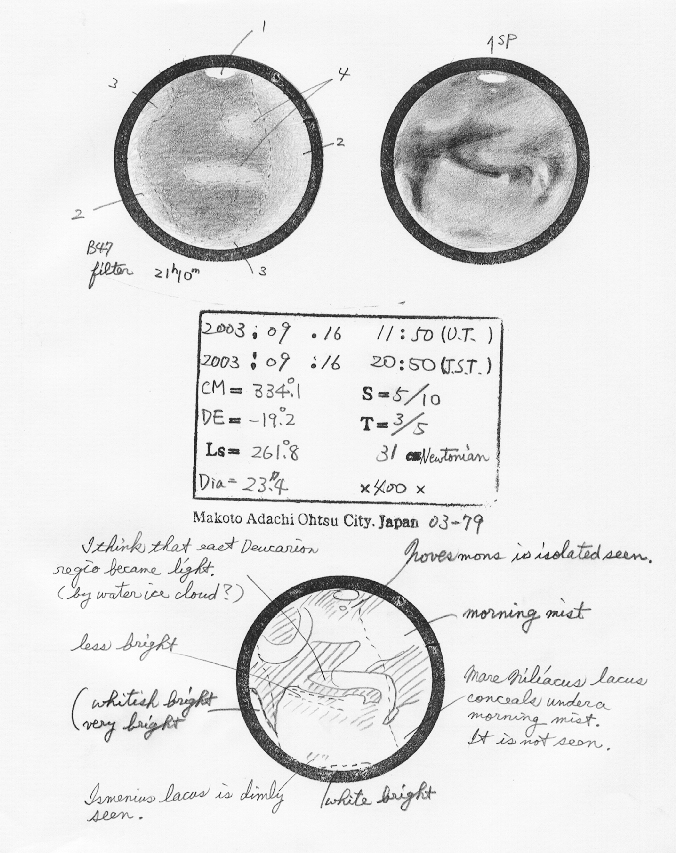 1
↑SP
3
4
2
2
3
B47
filter 21h10m
2003 : 09 . 16 11 : 50 (U.T. )
2003 : 09 : 16 20 : 50 (J.S.T. )
CM = 334.°1 S = 5/10
DE = -19.°2 T = 3/5
Ls = 261.°8 31 cm Newtonian
Dia = 23.″4 ×400 ×
Makoto Adachi Ohtsu City. Japan 03-79
I think that east Deucarion
regio became light.
(by water ice cloud?)
Novesmons is isolated seen.
morning mist
less bright
(whitish bright
very bright
Mare Niliacus lacus
conceals under a
morning mist.
It is not seen.
Ismenius lacus is dimly
seen.
white bright